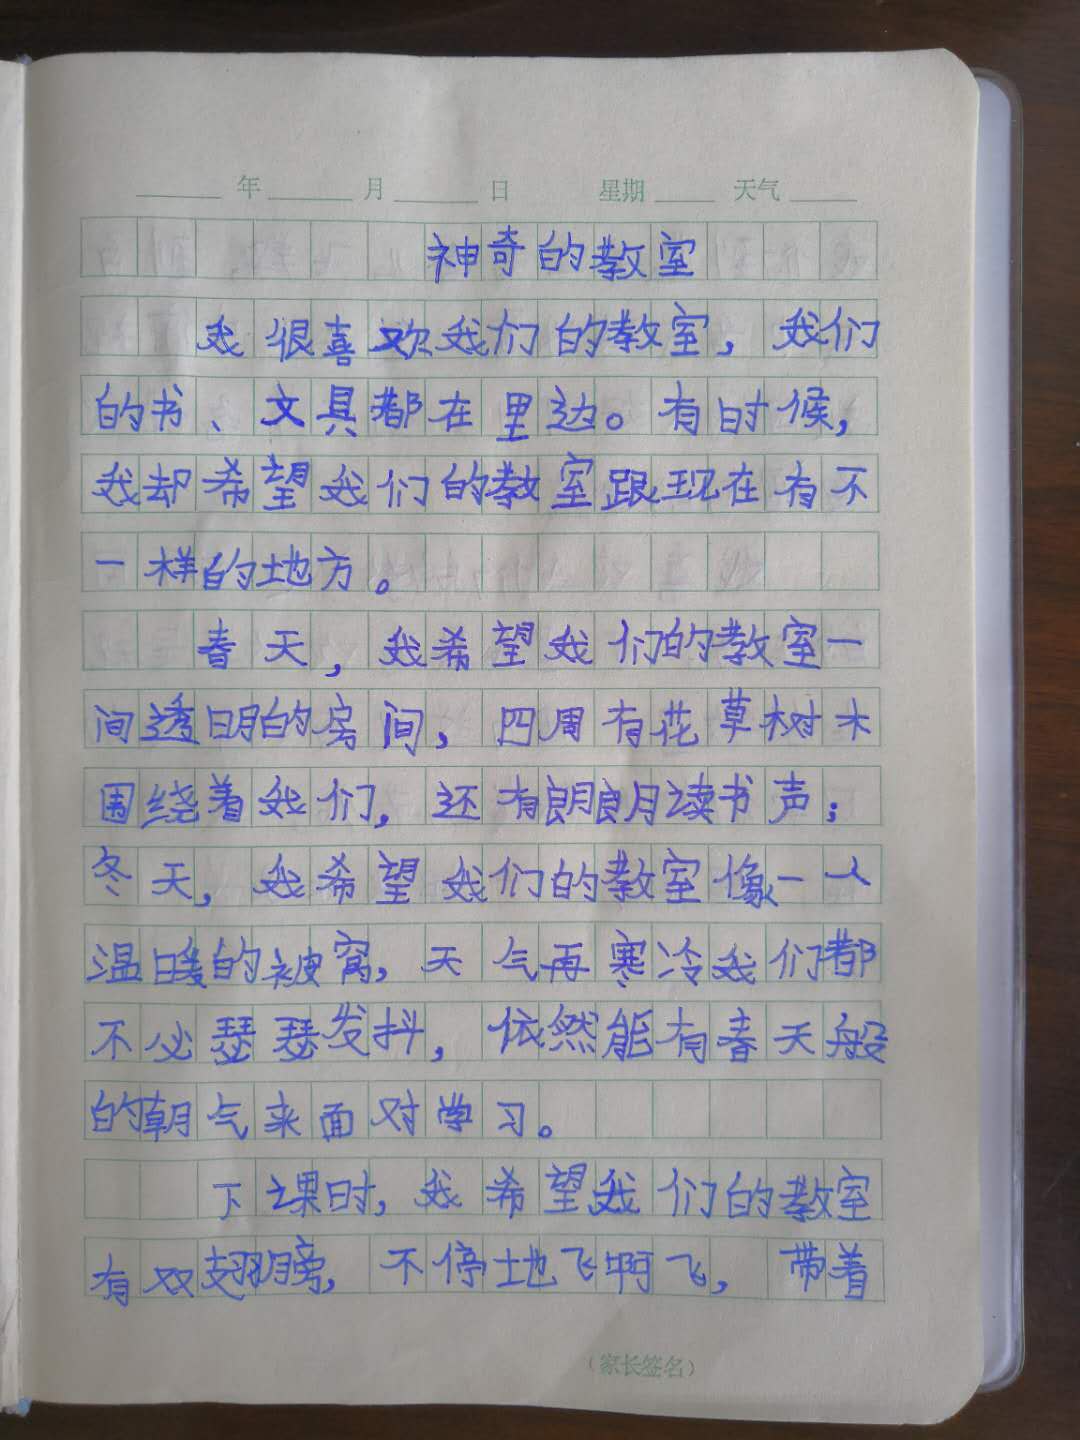 年 月 日 星期 天气
神奇的教室
我很喜欢我们的教室，我们
的书、文具都在里边。有时候，
我却希望我们的教室跟现在有不
一样的地方。
春天，我希望我们的教室一
间透明的房间，四周有花草树木
围绕着我们，还有朗朗读书声；
冬天，我希望我们的教室像一个
温暖的被窝，天气再寒冷我们都
不必瑟瑟发抖，依然能有春天般
的朝气来面对学习。
下课时，我希望我们的教室
有双翅膀，不停地飞啊飞，带着
（家长签名）